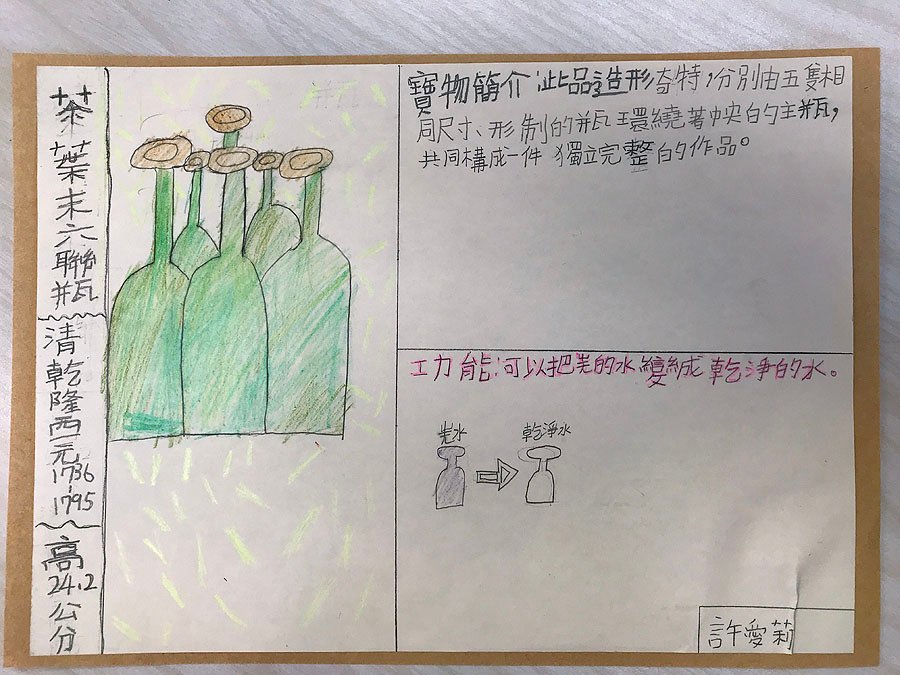 茶葉末六聯瓶
清乾隆西元1736-1795
高24.2公分
寶物簡介:此品造形奇特,分別由五隻相
同尺寸、形制的瓶環繞著中央的主瓶,
共同構成一件獨立完整的作品。
功能:可以把的水變成乾淨的水。
水
乾淨水
許愛莉